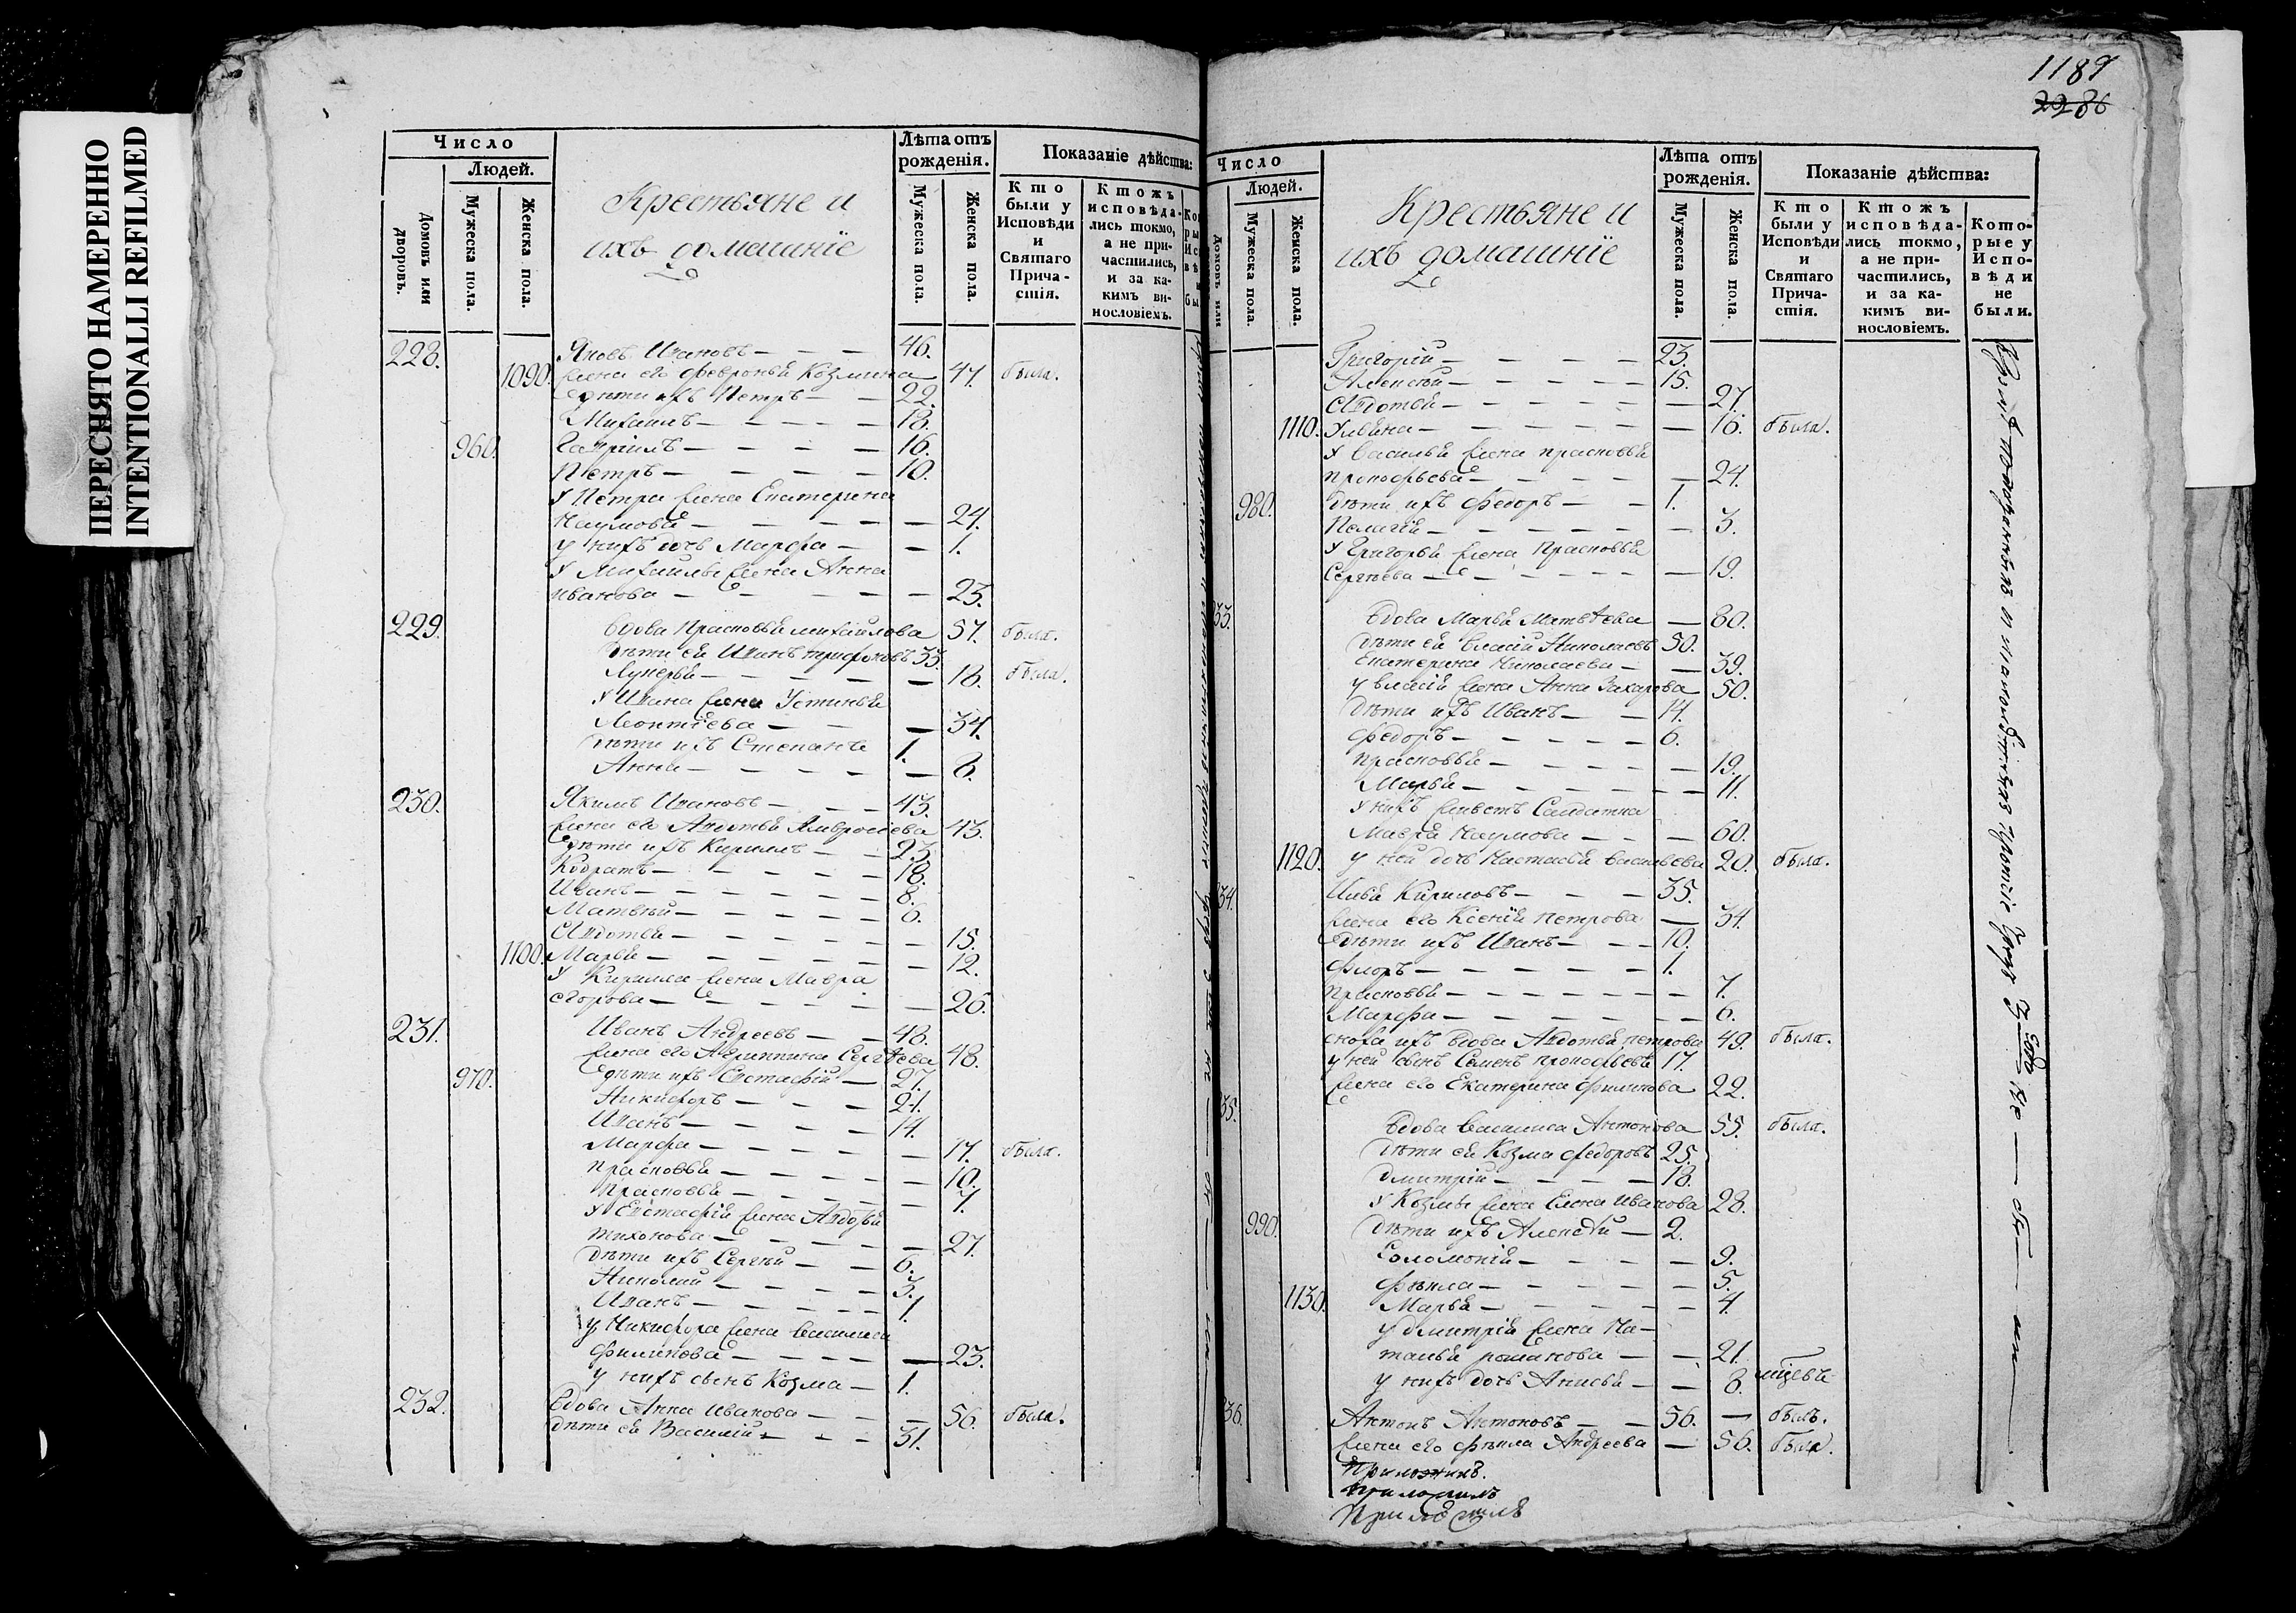 ПЕРЕСНЯТО НАМЕРЕННО
INTENTIONALLI REFILMED
Число
Людей.
Домовъ или дворовъ.
Мужеска пола.
Женска пола.
Крестьяне и
ихъ домашніе
Лѣта отъ рожденія.
Мужеска пола.
Женска пола.
Показаніе дѣйства:
Кто были у Исповѣди и Святаго Причастія.
Ктожъ исповѣдались токмо, а не причастились, и за какимъ винословіемъ.
228. Яковъ Ивановъ 46.
1090. жена его Февронья Козмина 47. была.
дѣти ихъ Петръ 22.
Михаилъ 18.
960. Гавріилъ 16.
Петръ 10.
У Петра жена Екатерина
Наумова 24.
у нихъ дочь Марфа 1.
У Михаилы жена Анна
Иванова 23.
229. Вдова Прасковья Михайлова 57. была.
дѣти ея Иванъ 33.
Лукерья 18. была.
У Ивана жена Устинья
Леонтіева 34.
дѣти ихъ Степанъ 1.
Анна 8.
230. Якимъ Ивановъ 43.
жена его Авдотья Амвросіева 43.
дѣти ихъ Кирилъ 23.
Кодратъ 18.
Иванъ 8.
Матвѣй 6.
Авдотья 15.
1100. Марья 12.
У Кирилла жена Мавра
Егорова 26.
231. Иванъ Андреевъ 48.
жена его Агриппина Сергѣева 48.
970. дѣти ихъ Евстафій 27.
Никифоръ 21.
Иванъ 14.
Марфа 17. была.
Прасковья 10.
Прасковья 7.
У Евстафія жена Авдотья
Тихонова 27.
дѣти ихъ Сергѣй 6.
Николай 3.
Иванъ 1.
У Никифора жена Василиса
Филипова 23.
у нихъ сынъ Козма 1.
232. Вдова Анна Иванова 56. была.
дѣти ея Василій 31.
1189
2286
Число
Людей.
Домовъ или
Мужеска пола.
Женска пола.
Крестьяне и
ихъ домашніе
Лѣта отъ рожденія.
Мужеска пола.
Женска пола.
Показаніе дѣйства:
Кто были у Исповѣди и Святаго Причастія.
Ктожъ исповѣдались токмо, а не причастились, и за какимъ винословіемъ.
Которые у Исповѣди не были.
Григорій 23.
Алексѣй 15.
Авдотья 27.
1110. Ульяна 16. была.
У Василья жена Прасковья
Прокофьева 24.
980. дѣти ихъ Федоръ 1.
Пелагія 3.
У Григорья жена Прасковья
Сергѣева 19.
33. Вдова Марья Матвѣева 80.
дѣти ея Власій Николаевъ 50.
Екатерина Николаева 39.
у Власія жена Анна Захарова 50.
дѣти ихъ Иванъ 14.
Федоръ 6.
Прасковья 19.
Марья 11.
У нихъ живетъ Салдатка
Мавра Наумова 60.
1120. у ней дочь Настасья Васильева 20. была.
34. Илья Кириловъ 35.
жена его Ксенія Петрова 34.
дѣти ихъ Иванъ 10.
Флоръ 1.
Прасковья 7.
Марфа 6.
сноха ихъ вдова Авдотья Петрова 49. была.
у ней сынъ Семенъ Прокофьевъ 17.
жена его Екатерина Филипова 22.
35. Вдова Василиса Антонова 55. была.
дѣти ея Козма Федоровъ 25.
Дмитрій 18.
У Козмы жена Елена Иванова 28.
990. дѣти ихъ Алексѣй 2.
Соломонія 9.
Фекла 5.
1130. Марья 4.
У Дмитрія жена На-
талья Романова 21.
у нихъ дочь Анисья 8.
36. Антонъ Антоновъ 56. былъ.
жена его Фекла Андреева 56. была.